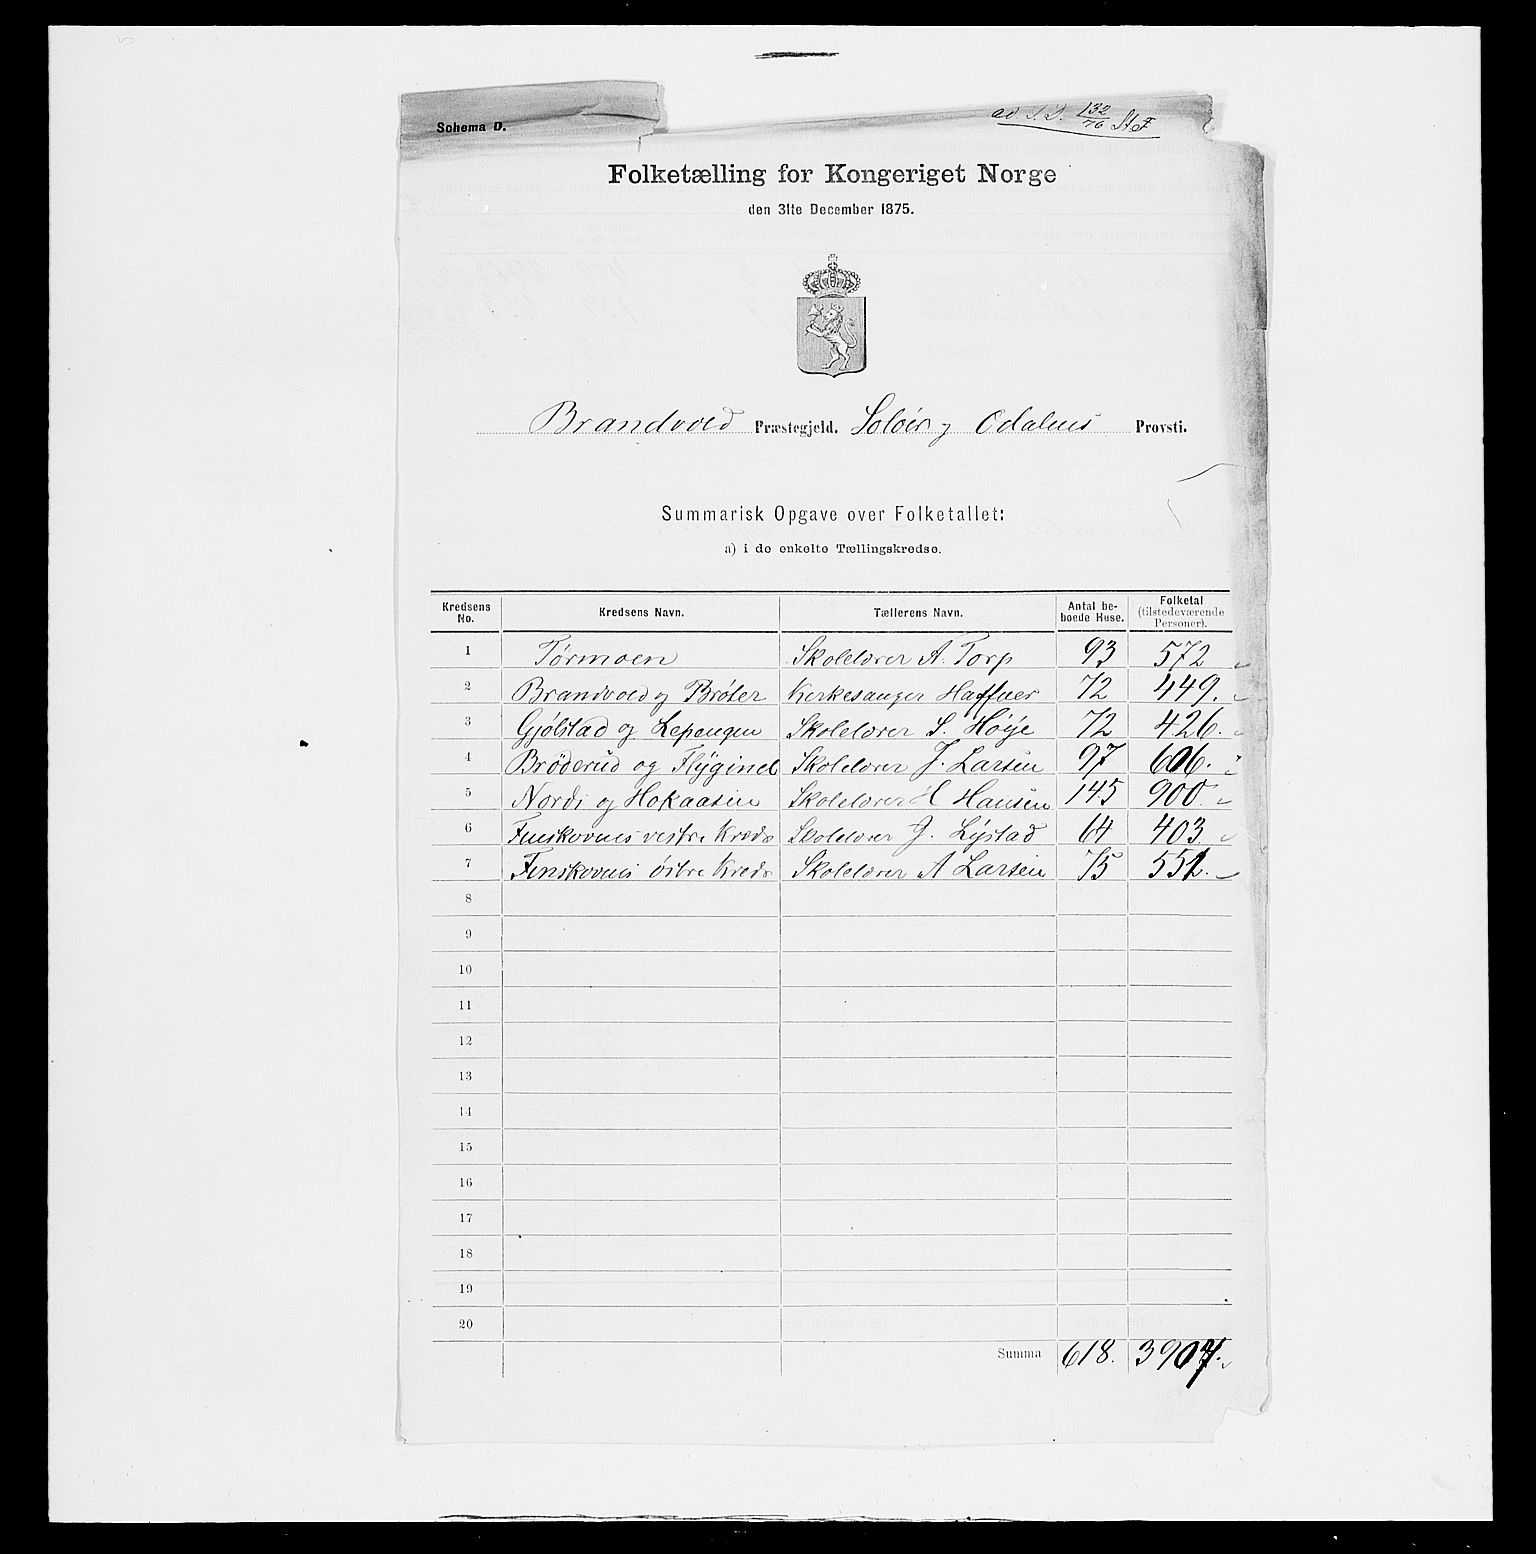 Schema D.
ad S.D. 132/76 St F
Folketælling for Kongeriget Norge
den 31te December 1875.
Brandvold Præstegjeld. Soløir og Odalens Provsti.
Summarisk Opgave over Folketallet:
a) i de enkelte Tællingskredse.
Kredsens No. Kredsens Navn. Tællerens Navn. Antal beboede Huse. Folketal (tilstedeværende Personer).
1 Tørmoen Skolelærer A. Torp 93 572
2 Brandvold og Brøter Kirkesanger Haffner 72 449.
3 Gjølstad og Lepengen Skolelærer S. Høije 72 426.
4 Brøderud og Flÿginel Skolelærer J. Larsen 97 606.
5 Nordi og Hokaasen Skolelærer H Hansen 145 900
6 Finskovens vestre Kreds Skolelærer J. Lÿstad 64 403
7 Finskovens østre Kreds Skolelærer A Larsen 75 551.
8
9
10
11
12
13
14
15
16
17
18
19
20
Summa 618. 3907.